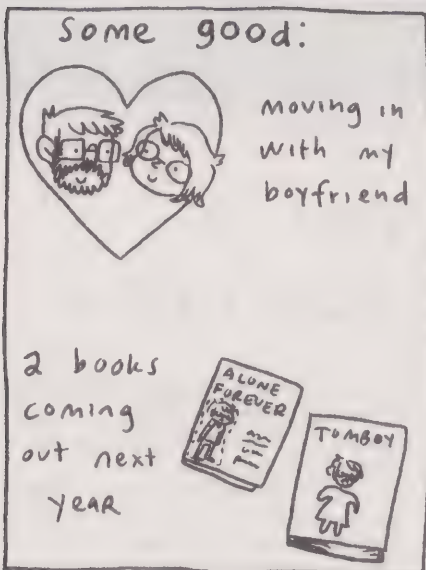 some good:
moving in
with my
boyfriend
2 books
coming
out next
year
ALONE
FOREVER
TOMBOY